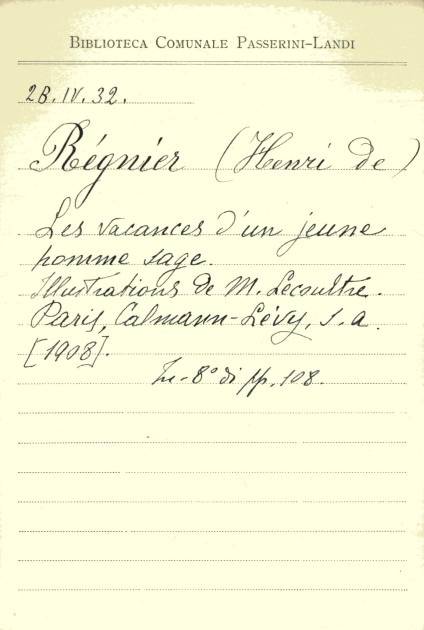 BIBLIOTECA COMUNALE PASSERINI-LANDI
2B.IV.32.
Régnier (Henri de)
Les vacances d'un jeune
homme sage.
Illustrations de M. Lecoultre.
Paris, Calmann-Lévy, s.a.
[1908].
In-8° di pp. 108.